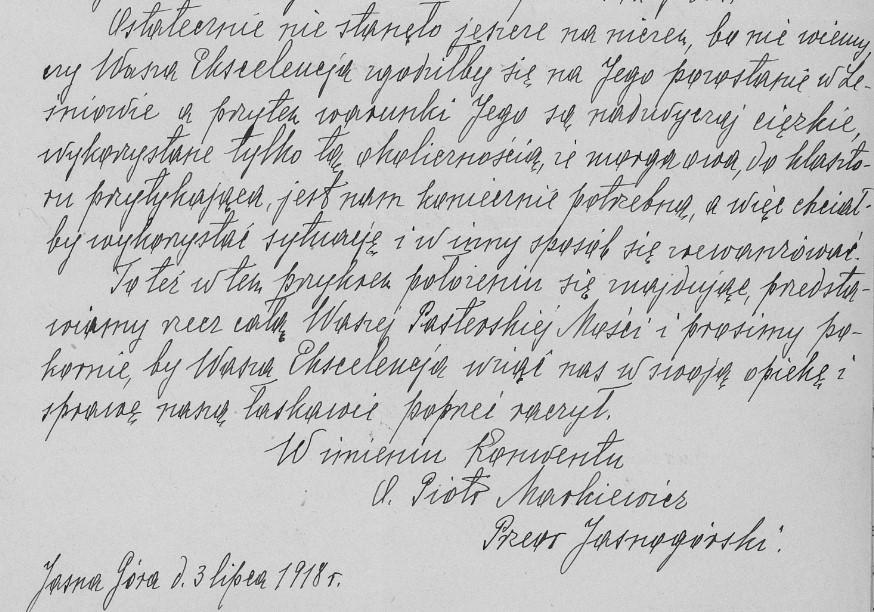 Ostatecznie nie stanęło jeszcze na niczem, bo nie wiemy,
czy Wasza Ekscelencja zgodziłby się na Jego pozostanie w Le-
śniowie a przytem warunki Jego są nadzwyczaj ciężkie,
wykorzystane tylko tą okolicznością, iż morga owa, do klaszto-
ru przytykająca, jest nam koniecznie potrzebną, a więc chciał-
by wykorzystać sytuację i w inny sposób się zrewanżować.
To też w tem przykrem położeniu się znajdując, przedsta-
wiamy rzecz całą Waszej Pasterskiej Mości i prosimy po-
kornie, by Wasza Ekscelencja wziąć nas w swoją opiekę i
sprawę naszą łaskawie poprzeć raczył.
W imieniu Konwentu
O. Piotr Markiewicz
Przeor Jasnogórski.
Jasna Góra d. 3 lipca 1918 r.